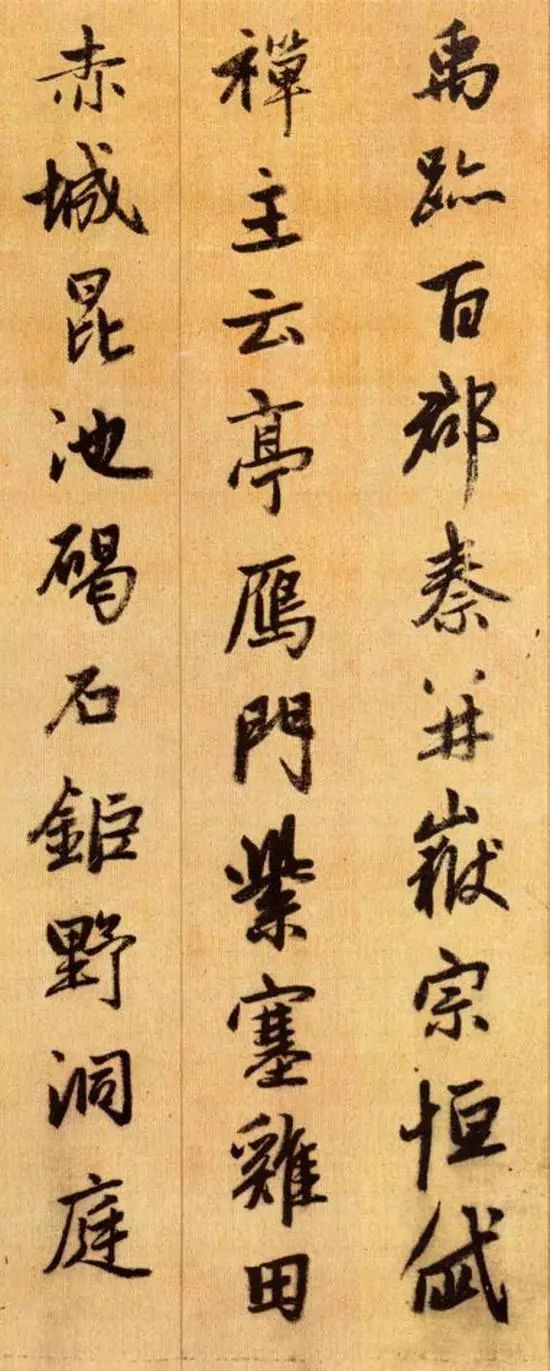 禹跡百郡秦并嶽宗恒岱
禪主云亭鴈門紫塞雞田
赤城昆池碣石鉅野洞庭